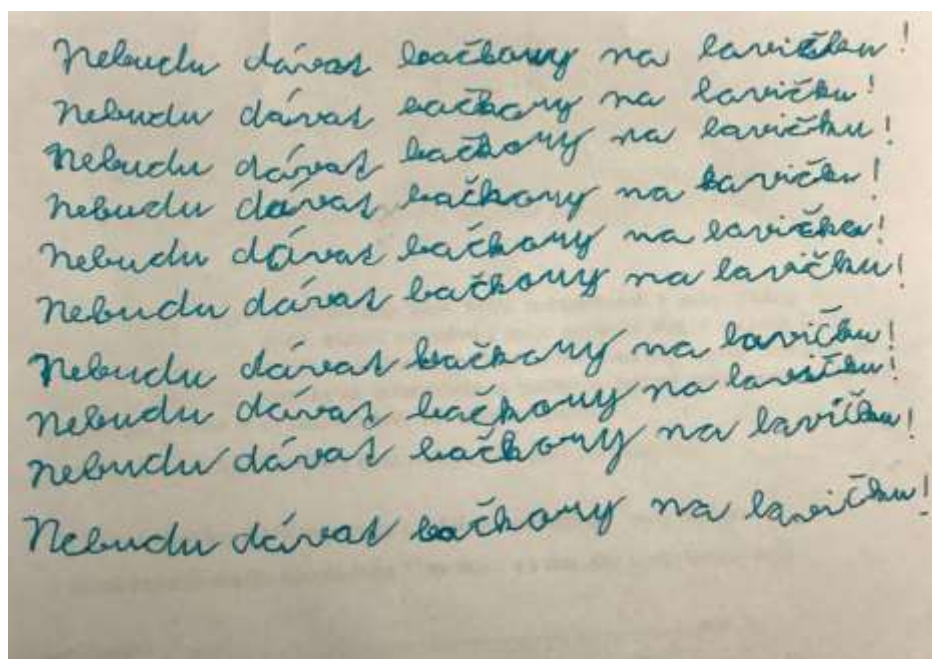 Nebudu dávat bačkory na lavičku!
Nebudu dávat bačkory na lavičku!
Nebudu dávat bačkory na lavičku!
Nebudu dávat bačkory na lavičku!
Nebudu dávat bačkory na lavičku!
Nebudu dávat bačkory na lavičku!
Nebudu dávat bačkory na lavičku!
Nebudu dávat bačkory na lavičku!
Nebudu dávat bačkory na lavičku!
Nebudu dávat bačkory na lavičku!